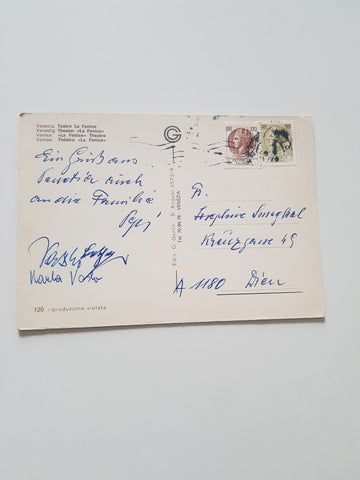 Venezia. Teatro La Fenice
Venedig. Theater «La Fenice»
Venice. «La Fenice» Theatre
Venise. Théâtre «La Fenice»
Ein Gruß aus
Venedig auch
an die Familie
Karla
120 riproduzione vietata
Ediz. G. Gentile - S. Angelo 3572/A
Tel. 70.94.76 - VENEZIA
G
Fr.
Josephine
Kreuzgasse 49
A 1180 Wien